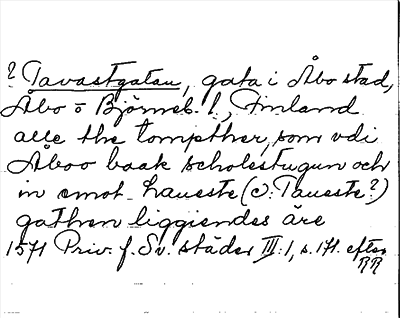 ? Tavastgatan, gata i Åbo stad,
Åbo o Björneb. l., Finland
alle the tompther, som vdi
Åboo baak scholestugun och
in emot haueste (o: Taueste?)
gathen liggiendes äre
1571 Priv. f. Sv. städer III:1, s. 171. efter
RR